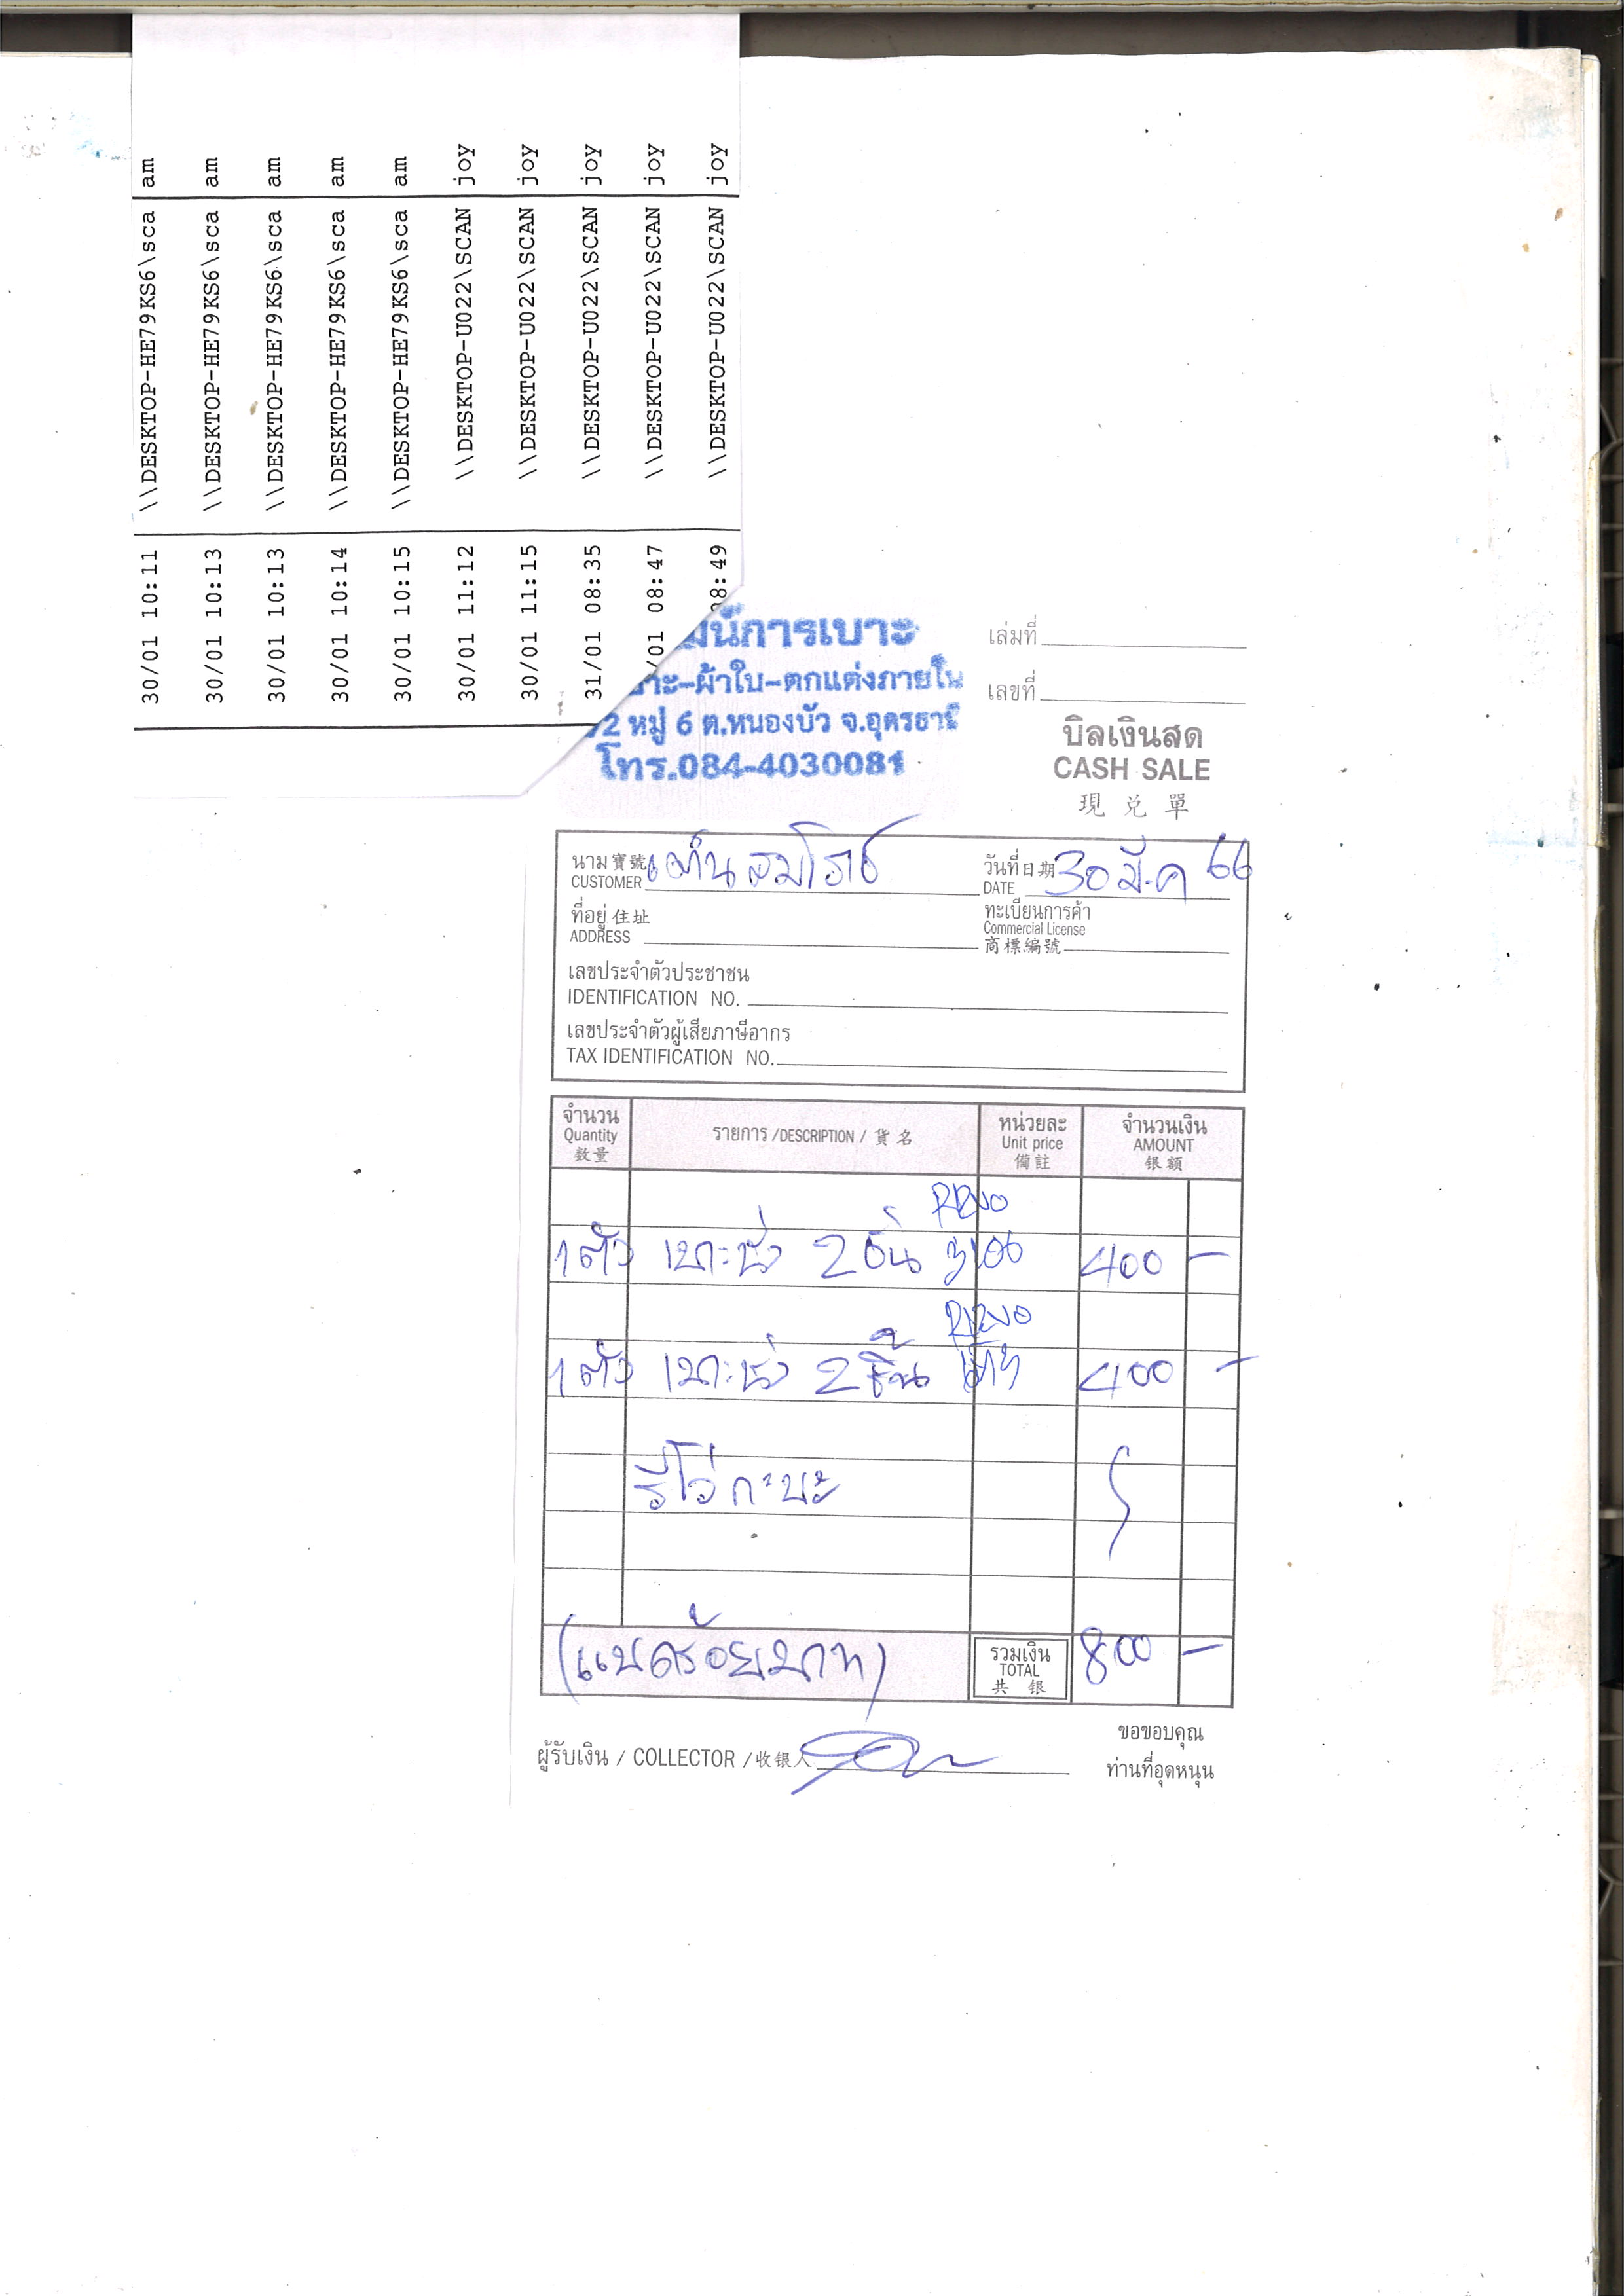 30/01 10:11 \\DESKTOP-HE79KS6\sca am
30/01 10:13 \\DESKTOP-HE79KS6\sca am
30/01 10:13 \\DESKTOP-HE79KS6\sca am
30/01 10:14 \\DESKTOP-HE79KS6\sca am
30/01 10:15 \\DESKTOP-HE79KS6\sca am
30/01 11:12 \\DESKTOP-U022\SCAN joy
30/01 11:15 \\DESKTOP-U022\SCAN joy
31/01 08:35 \\DESKTOP-U022\SCAN joy
/01 08:47 \\DESKTOP-U022\SCAN joy
08:49 \\DESKTOP-U022\SCAN joy
การเบาะ
-ผ้าใบ-ตกแต่งภายใน
2 หมู่ 6 ต.หนองบัว จ.อุดรธานี
โทร.084-4030081
เล่มที่
เลขที่
บิลเงินสด
CASH SALE
現兌單
นาม 寶號
CUSTOMER
วันที่ 日期 30 มี.ค 66
DATE
ที่อยู่ 住址
ADDRESS
ทะเบียนการค้า
Commercial License
商標編號
เลขประจำตัวประชาชน
IDENTIFICATION NO.
เลขประจำตัวผู้เสียภาษีอากร
TAX IDENTIFICATION NO.
จำนวน รายการ /DESCRIPTION / 貨名 หน่วยละ จำนวนเงิน
Quantity Unit price AMOUNT
数量 備註 银額
1 ตัว เบาะนั่ง 2 ชิ้น 400 -
1 ตัว เบาะนั่ง 2 ชิ้น 400 -
รีโว่ กะบะ
(แปดร้อยบาท) รวมเงิน 800 -
TOTAL
共 银
ผู้รับเงิน / COLLECTOR / 收银人
ขอขอบคุณ
ท่านที่อุดหนุน